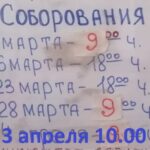 Соборования
марта - 9⁰⁰ ч.
марта - 18⁰⁰ ч.
23 марта - 18⁰⁰ ч.
28 марта - 9 ч.
3 апреля 10.00